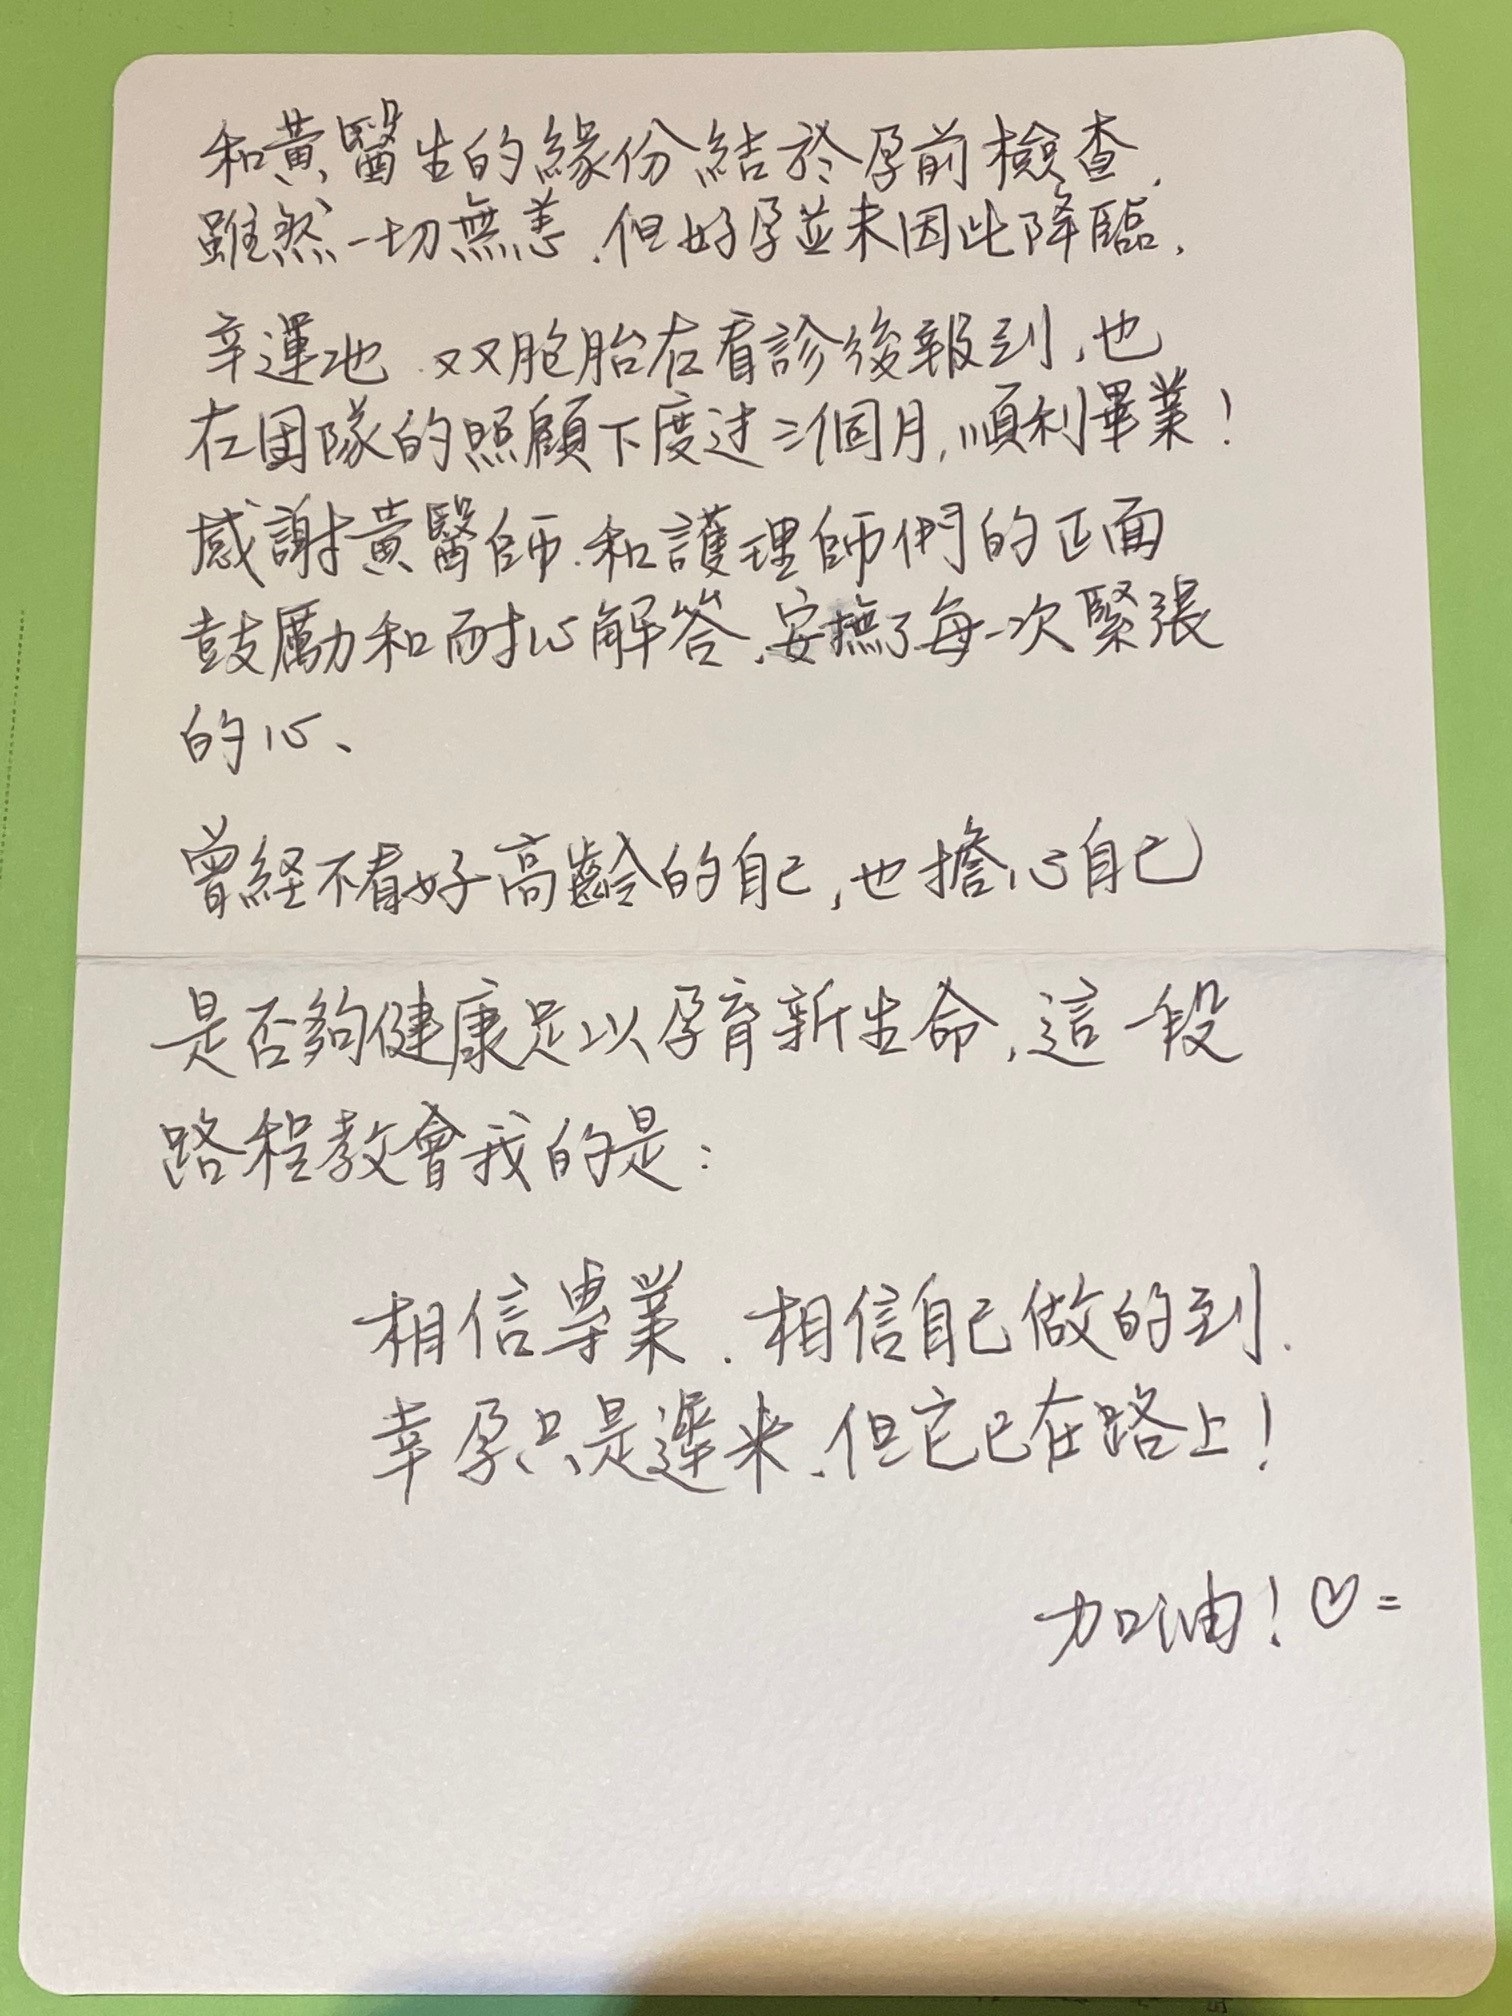 和黃醫生的緣份結於孕前檢查,
雖然一切無恙,但好孕並未因此降臨,
幸運地,双胞胎在看診後報到,也
在团隊的照顧下度过三個月,順利畢業!
感謝黃醫師,和護理師們的正面
鼓勵和耐心解答,安撫了每一次緊張
的心、
曾経不看好高齡的自己,也擔心自己
是否夠健康足以孕育新生命,這一段
路程教會我的是:
相信專業,相信自己做的到.
幸孕只是遲来,但它已在路上!
加油!♡=